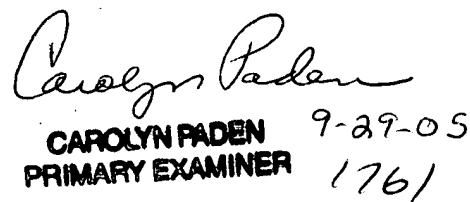 Carolyn Paden
CAROLYN PADEN 9-29-05
PRIMARY EXAMINER 1761